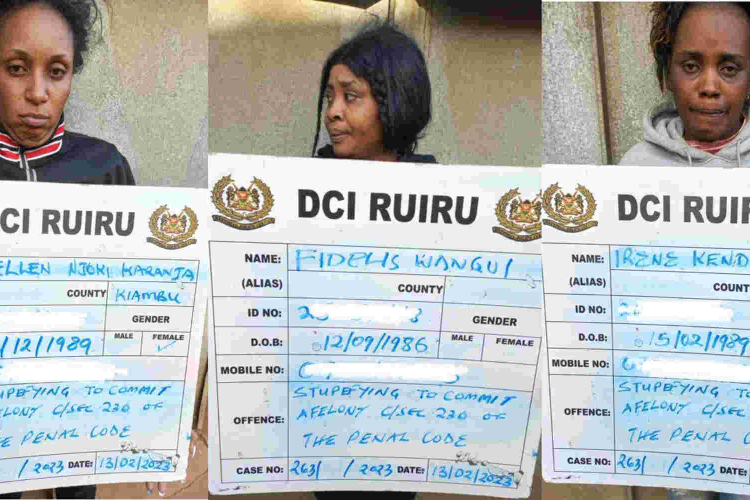 CI RUIRU
ELLEN NJOKI KARANJA
COUNTY KIAMBU
GENDER
MALE FEMALE
/12/1989
STUPEFYING TO COMMIT
FELONY C/SEC 230 OF
THE PENAL CODE
/2023 DATE: 13/02/2023
DCI RUIRU
NAME: FIDELIS WANGUI
(ALIAS) COUNTY
ID NO: 2 3 GENDER
D.O.B: 12/09/1986 MALE FEMALE
MOBILE NO: 0
OFFENCE: STUPEFYING TO COMMIT
AFELONY C/SEC 230 OF
THE PENAL CODE
CASE NO: 263/ /2023 DATE: 13/02/2023
DCI RUIR
NAME: IRENE KEND
(ALIAS) COUNT
ID NO: 2
D.O.B: 15/02/1989
MOBILE NO: 0
OFFENCE: STUPEFYING TO
AFELONY C/SEC
THE PENAL CO
CASE NO: 263/ /2023 DATE: